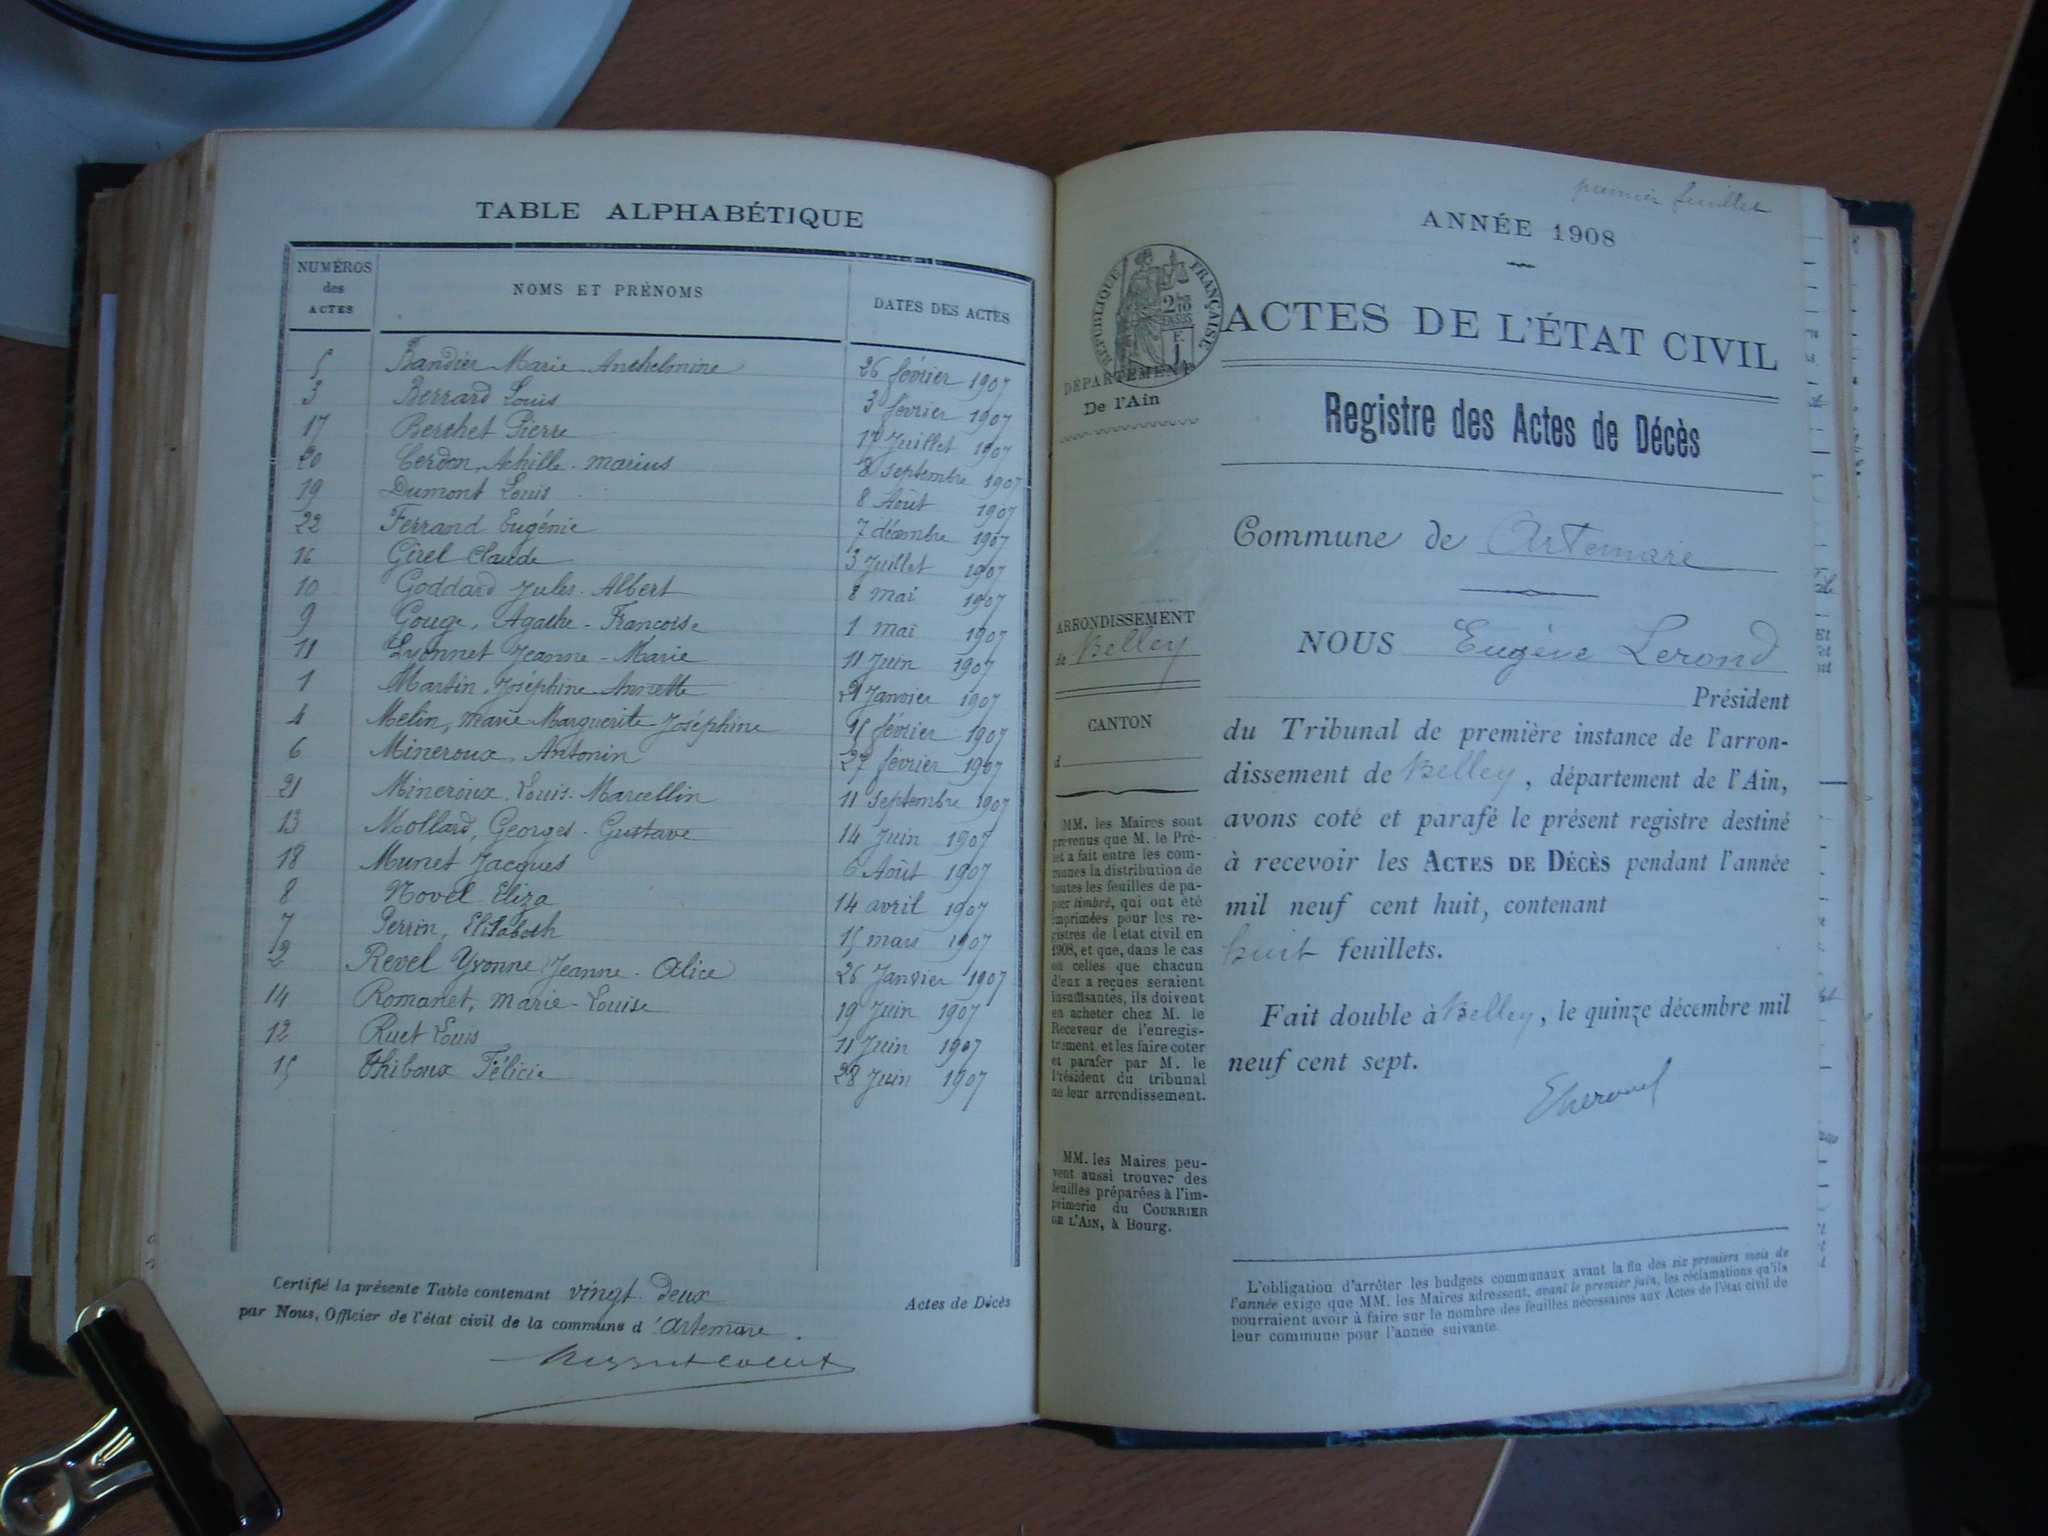 TABLE ALPHABÉTIQUE
NUMÉROS des ACTES NOMS ET PRÉNOMS DATES DES ACTES
5 Bandier Marie Anthelmine 26 février 1907
3 Berrard Louis 3 février 1907
17 Berthet Pierre 17 Juillet 1907
20 Cerdon, Achille-Marius 8 septembre 1907
19 Dumont Louis 8 Août 1907
22 Ferrand Eugénie 7 décembre 1907
16 Girel Claude 3 Juillet 1907
10 Goddard Jules-Albert 8 mai 1907
9 Gouge, Agathe-Francoise 1 mai 1907
11 Lyonnet Jeanne-Marie 11 Juin 1907
1 Martin, Joséphine Annette 21 Janvier 1907
4 Melin, Marie Marguerite Joséphine 15 février 1907
6 Mineroux, Antonin 27 février 1907
21 Mineroux, Louis-Marcellin 11 septembre 1907
13 Mollard, Georges-Gustave 14 Juin 1907
18 Munet Jacques 6 Août 1907
8 Novel Eliza 14 avril 1907
7 Perrin, Elisabeth 15 mars 1907
2 Revel Yvonne Jeanne-Alice 26 Janvier 1907
14 Romanet, Marie-Louise 19 Juin 1907
12 Ruet Louis 11 Juin 1907
15 Thiboux Félicie 28 Juin 1907
Certifié la présente Table contenant vingt deux Actes de Décès
par Nous, Officier de l'état civil de la commune d'Artemare.
premier feuillet
ANNÉE 1908
RÉPUBLIQUE FRANÇAISE
ACTES DE L'ÉTAT CIVIL
DÉPARTEMENT
De l'Ain
Registre des Actes de Décès
Commune de Artemare
ARRONDISSEMENT
de Belley
CANTON
d
MM. les Maires sont
prévenus que M. le Pré-
fet a fait entre les com-
munes la distribution de
toutes les feuilles de pa-
pier timbré, qui ont été
imprimées pour les re-
gistres de l'état civil en
1908, et que, dans le cas
où celles que chacun
d'eux a reçues seraient
insuffisantes, ils doivent
en acheter chez M. le
Receveur de l'enregis-
trement, et les faire coter
et parafer par M. le
Président du tribunal
de leur arrondissement.
MM. les Maires peu-
vent aussi trouver des
feuilles préparées à l'im-
primerie du COURRIER
DE L'AIN, à Bourg.
NOUS Eugène Lerond
Président
du Tribunal de première instance de l'arron-
dissement de Belley, département de l'Ain,
avons coté et parafé le présent registre destiné
à recevoir les ACTES DE DÉCÈS pendant l'année
mil neuf cent huit, contenant
huit feuillets.
Fait double à Belley, le quinze décembre mil
neuf cent sept.
L'obligation d'arrêter les budgets communaux avant la fin des six premiers mois de
l'année exige que MM. les Maires adressent, avant le premier juin, les réclamations qu'ils
pourraient avoir à faire sur le nombre des feuilles nécessaires aux Actes de l'état civil de
leur commune pour l'année suivante.